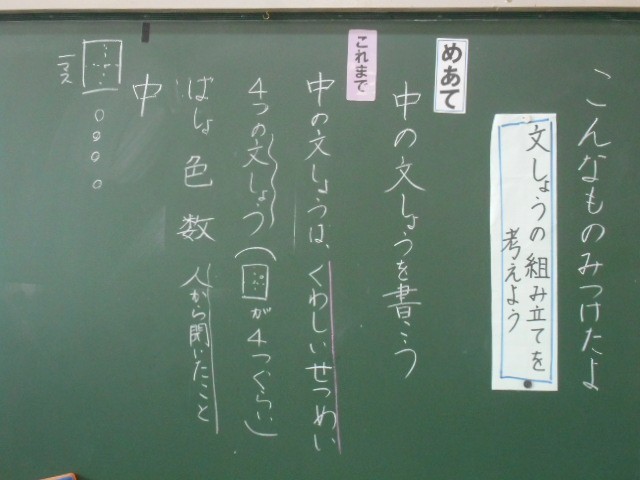 こんなものみつけたよ
文しょうの組み立てを
考えよう
めあて
中の文しょうを書こう
これまで
中の文しょうは、くわしいせつめい
4つの文しょう(が4つぐらい)
ばしょ 色 数 人から聞いたこと
中
一マス